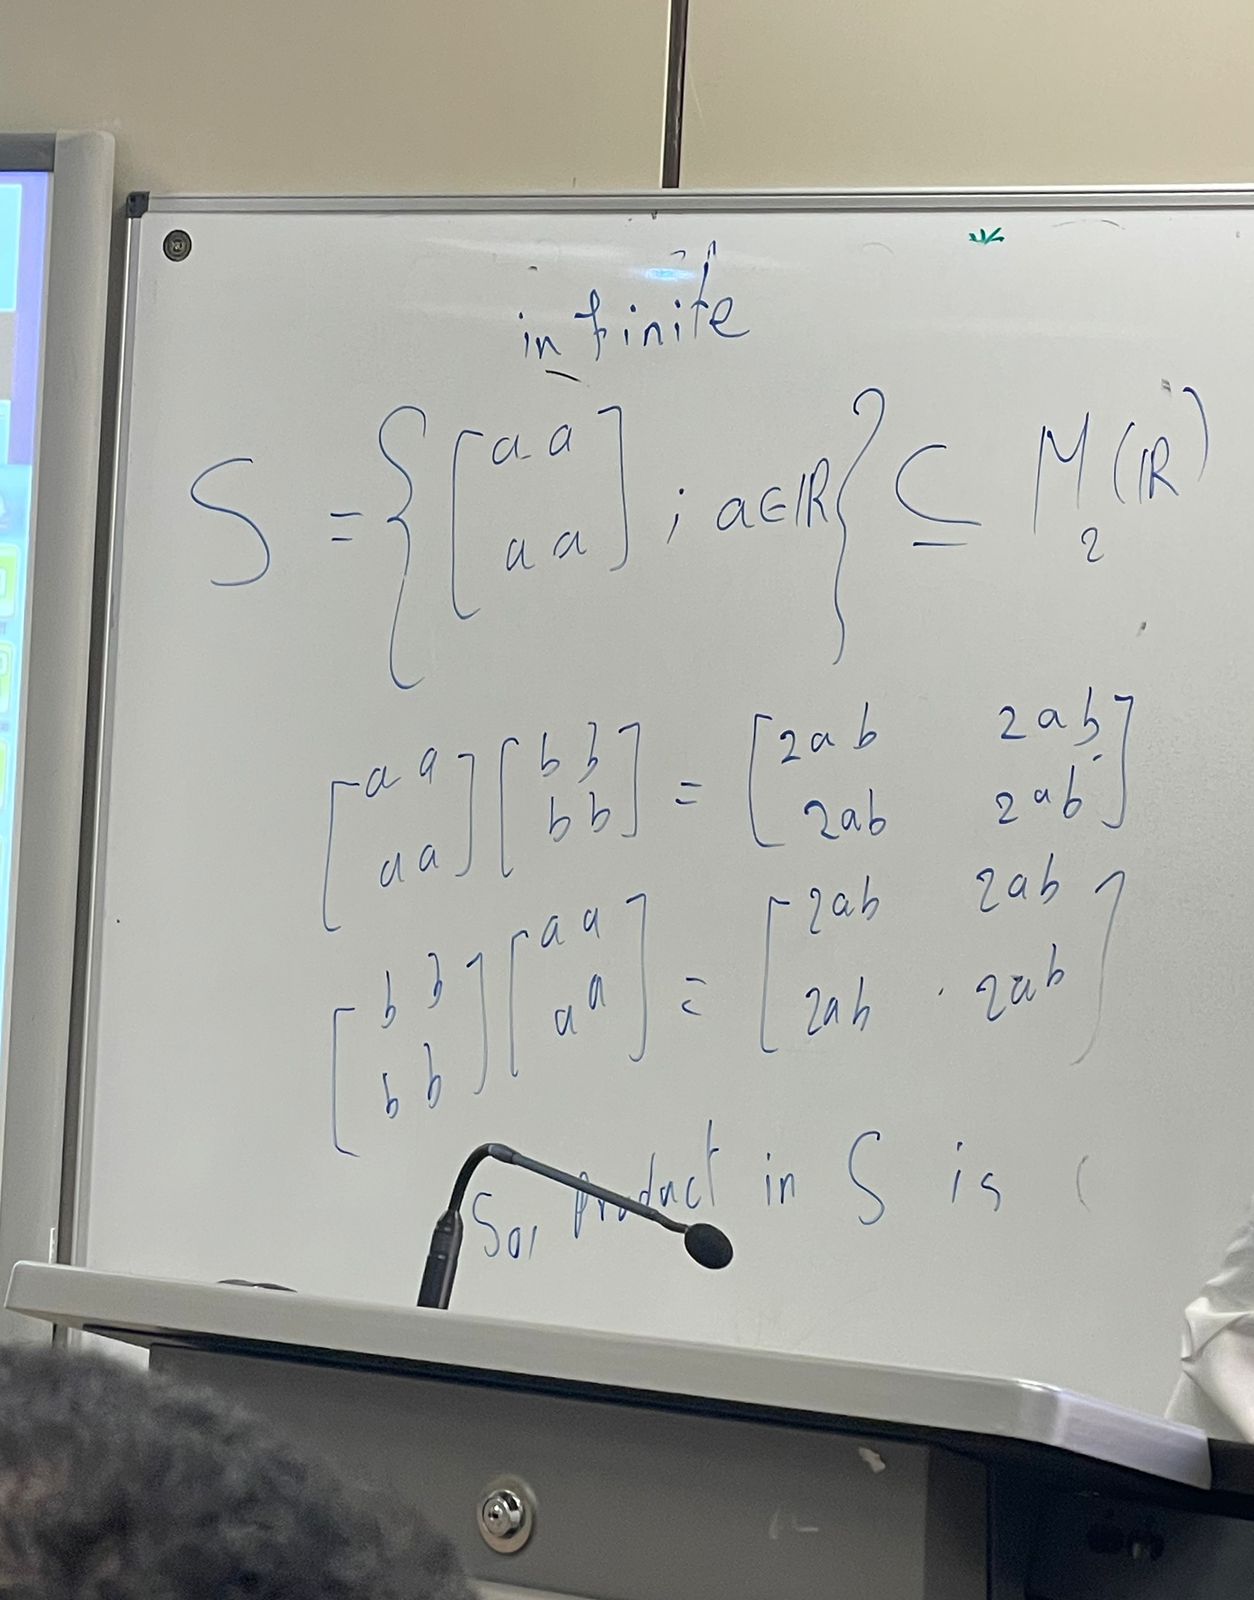 infinite
S = { [ a a ; a∈ℝ } ⊆ M₂(ℝ)
a a ]
[ a a [ b b = [ 2ab 2ab
a a ] b b ] 2ab 2ab ]
[ b b [ a a = [ 2ab 2ab
b b ] a a ] 2ab 2ab ]
So, product in S is (